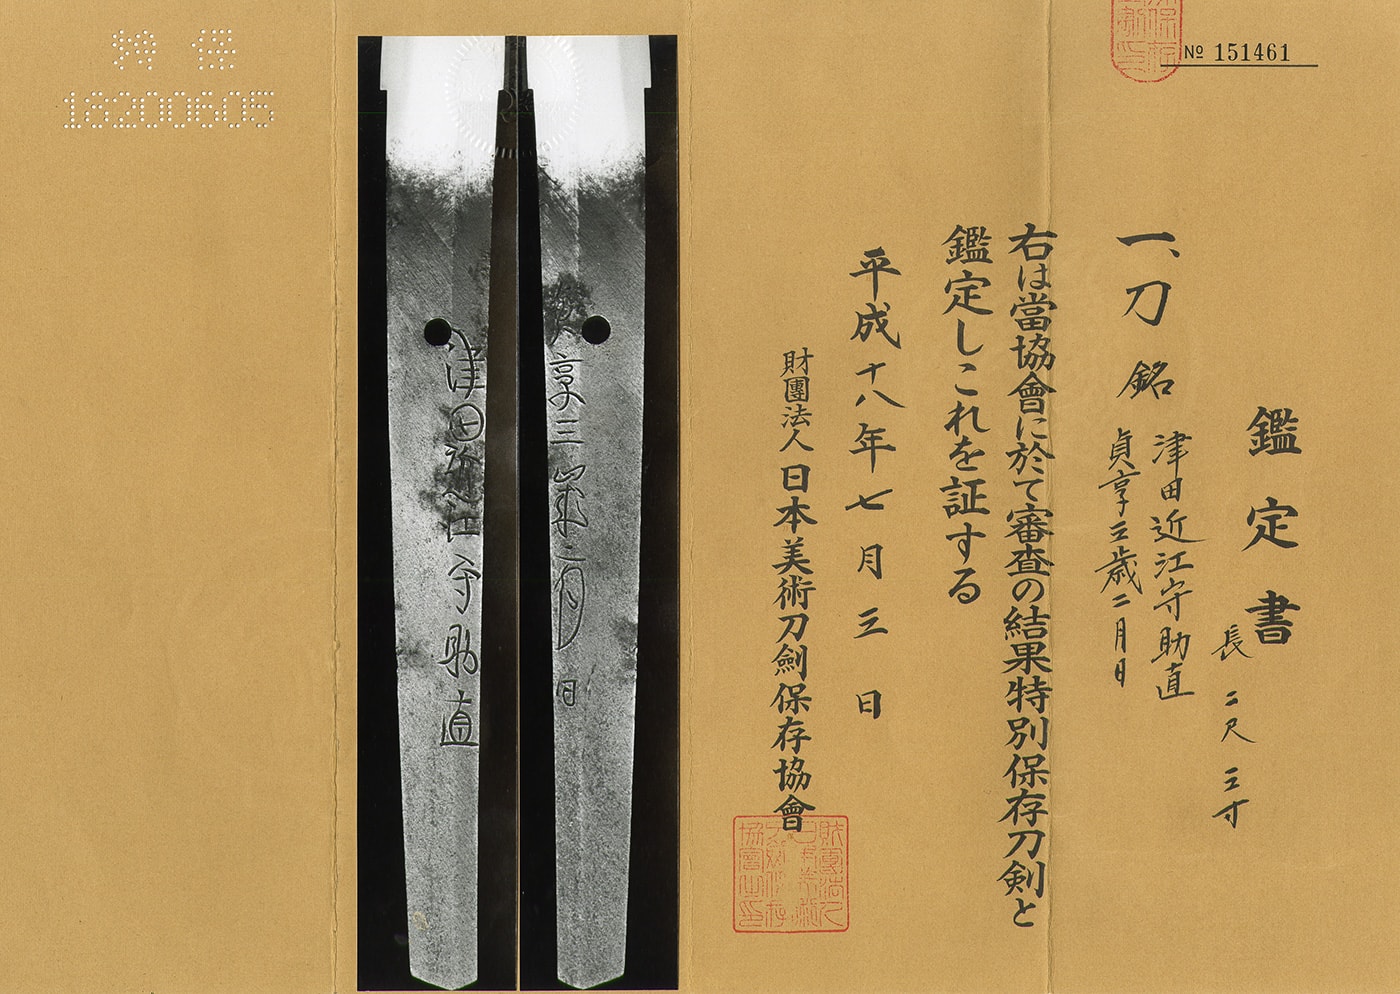 № 151461
鑑定書
長 二尺三寸
一、刀 銘
津田近江守助直
貞享三歳二月日
右は當協會に於て審査の結果特別保存刀剣と
鑑定しこれを証する
平成十八年七月三日
財團法人日本美術刀劍保存協會
津田近江守助直
貞享三歳二月日
特保
18200605